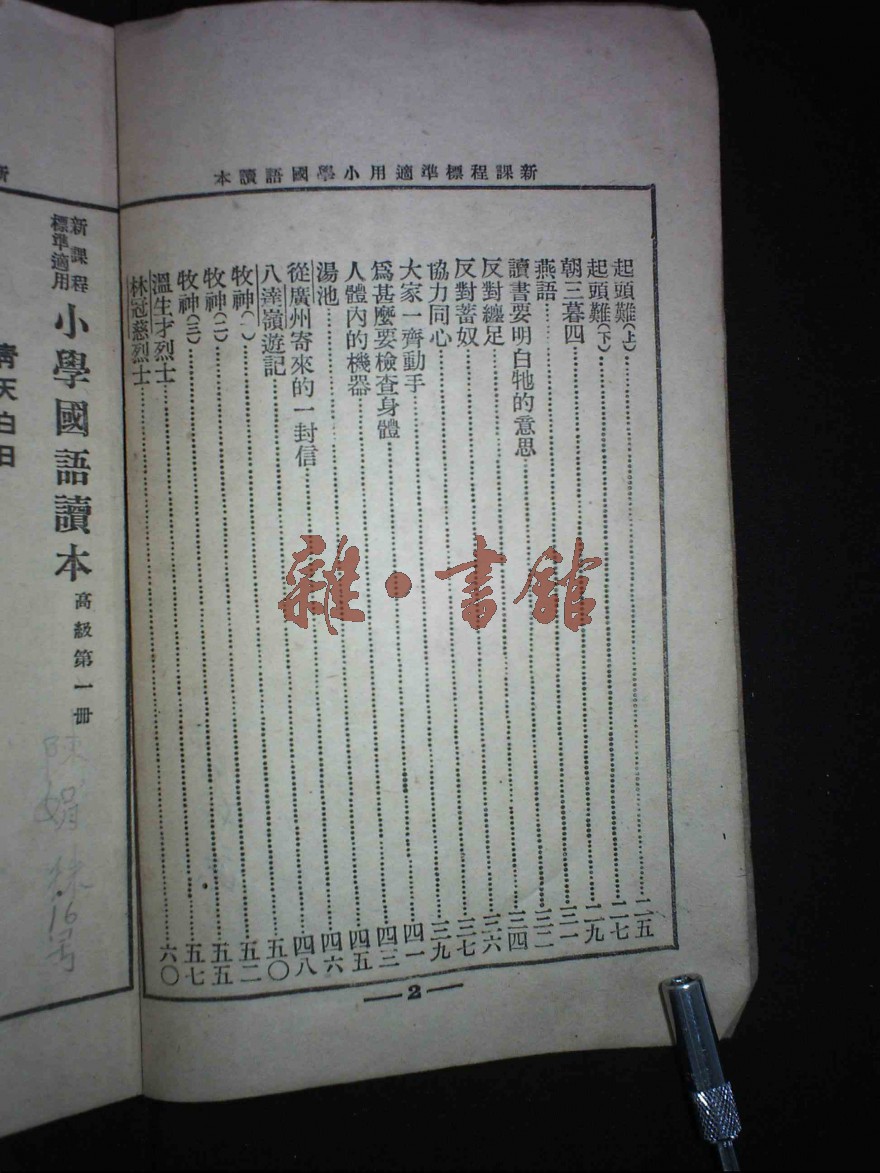 新課程標準適用小學國語讀本
起頭難(上)……二五
起頭難(下)……二七
朝三暮四……二九
燕語……三一
讀書要明白牠的意思……三二
反對纏足……三四
反對蓄奴……三六
協力同心……三七
大家一齊動手……三九
爲甚麼要檢查身體……四一
人體內的機器……四三
湯池……四五
從廣州寄來的一封信……四六
八達嶺遊記……四八
牧神(一)……五〇
牧神(二)……五二
牧神(三)……五五
溫生才烈士……五七
林冠慈烈士……六〇
—2—
新課程標準適用
小學國語讀本
高級第一冊
陳娟
16号
青天白日
雜·書館